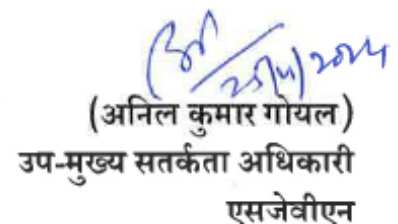 (अनिल कुमार गोयल)
उप-मुख्य सतर्कता अधिकारी
एसजेवीएन